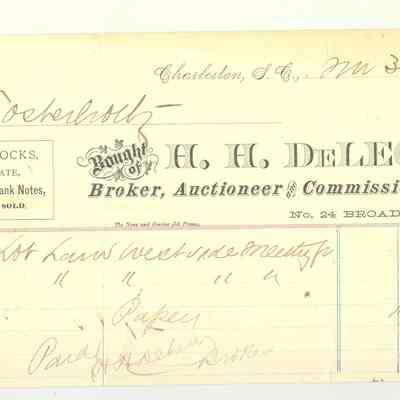 Charleston, S. C.,
OCKS,
ATE,
ank Notes,
SOLD.
Bought of H. H. DELE
Broker, Auctioneer and Commissi
No. 24 BROAD
The News and Courier Job Presses.
Lot Land West side Meeting
" " " "
Paper
Paid
Broker